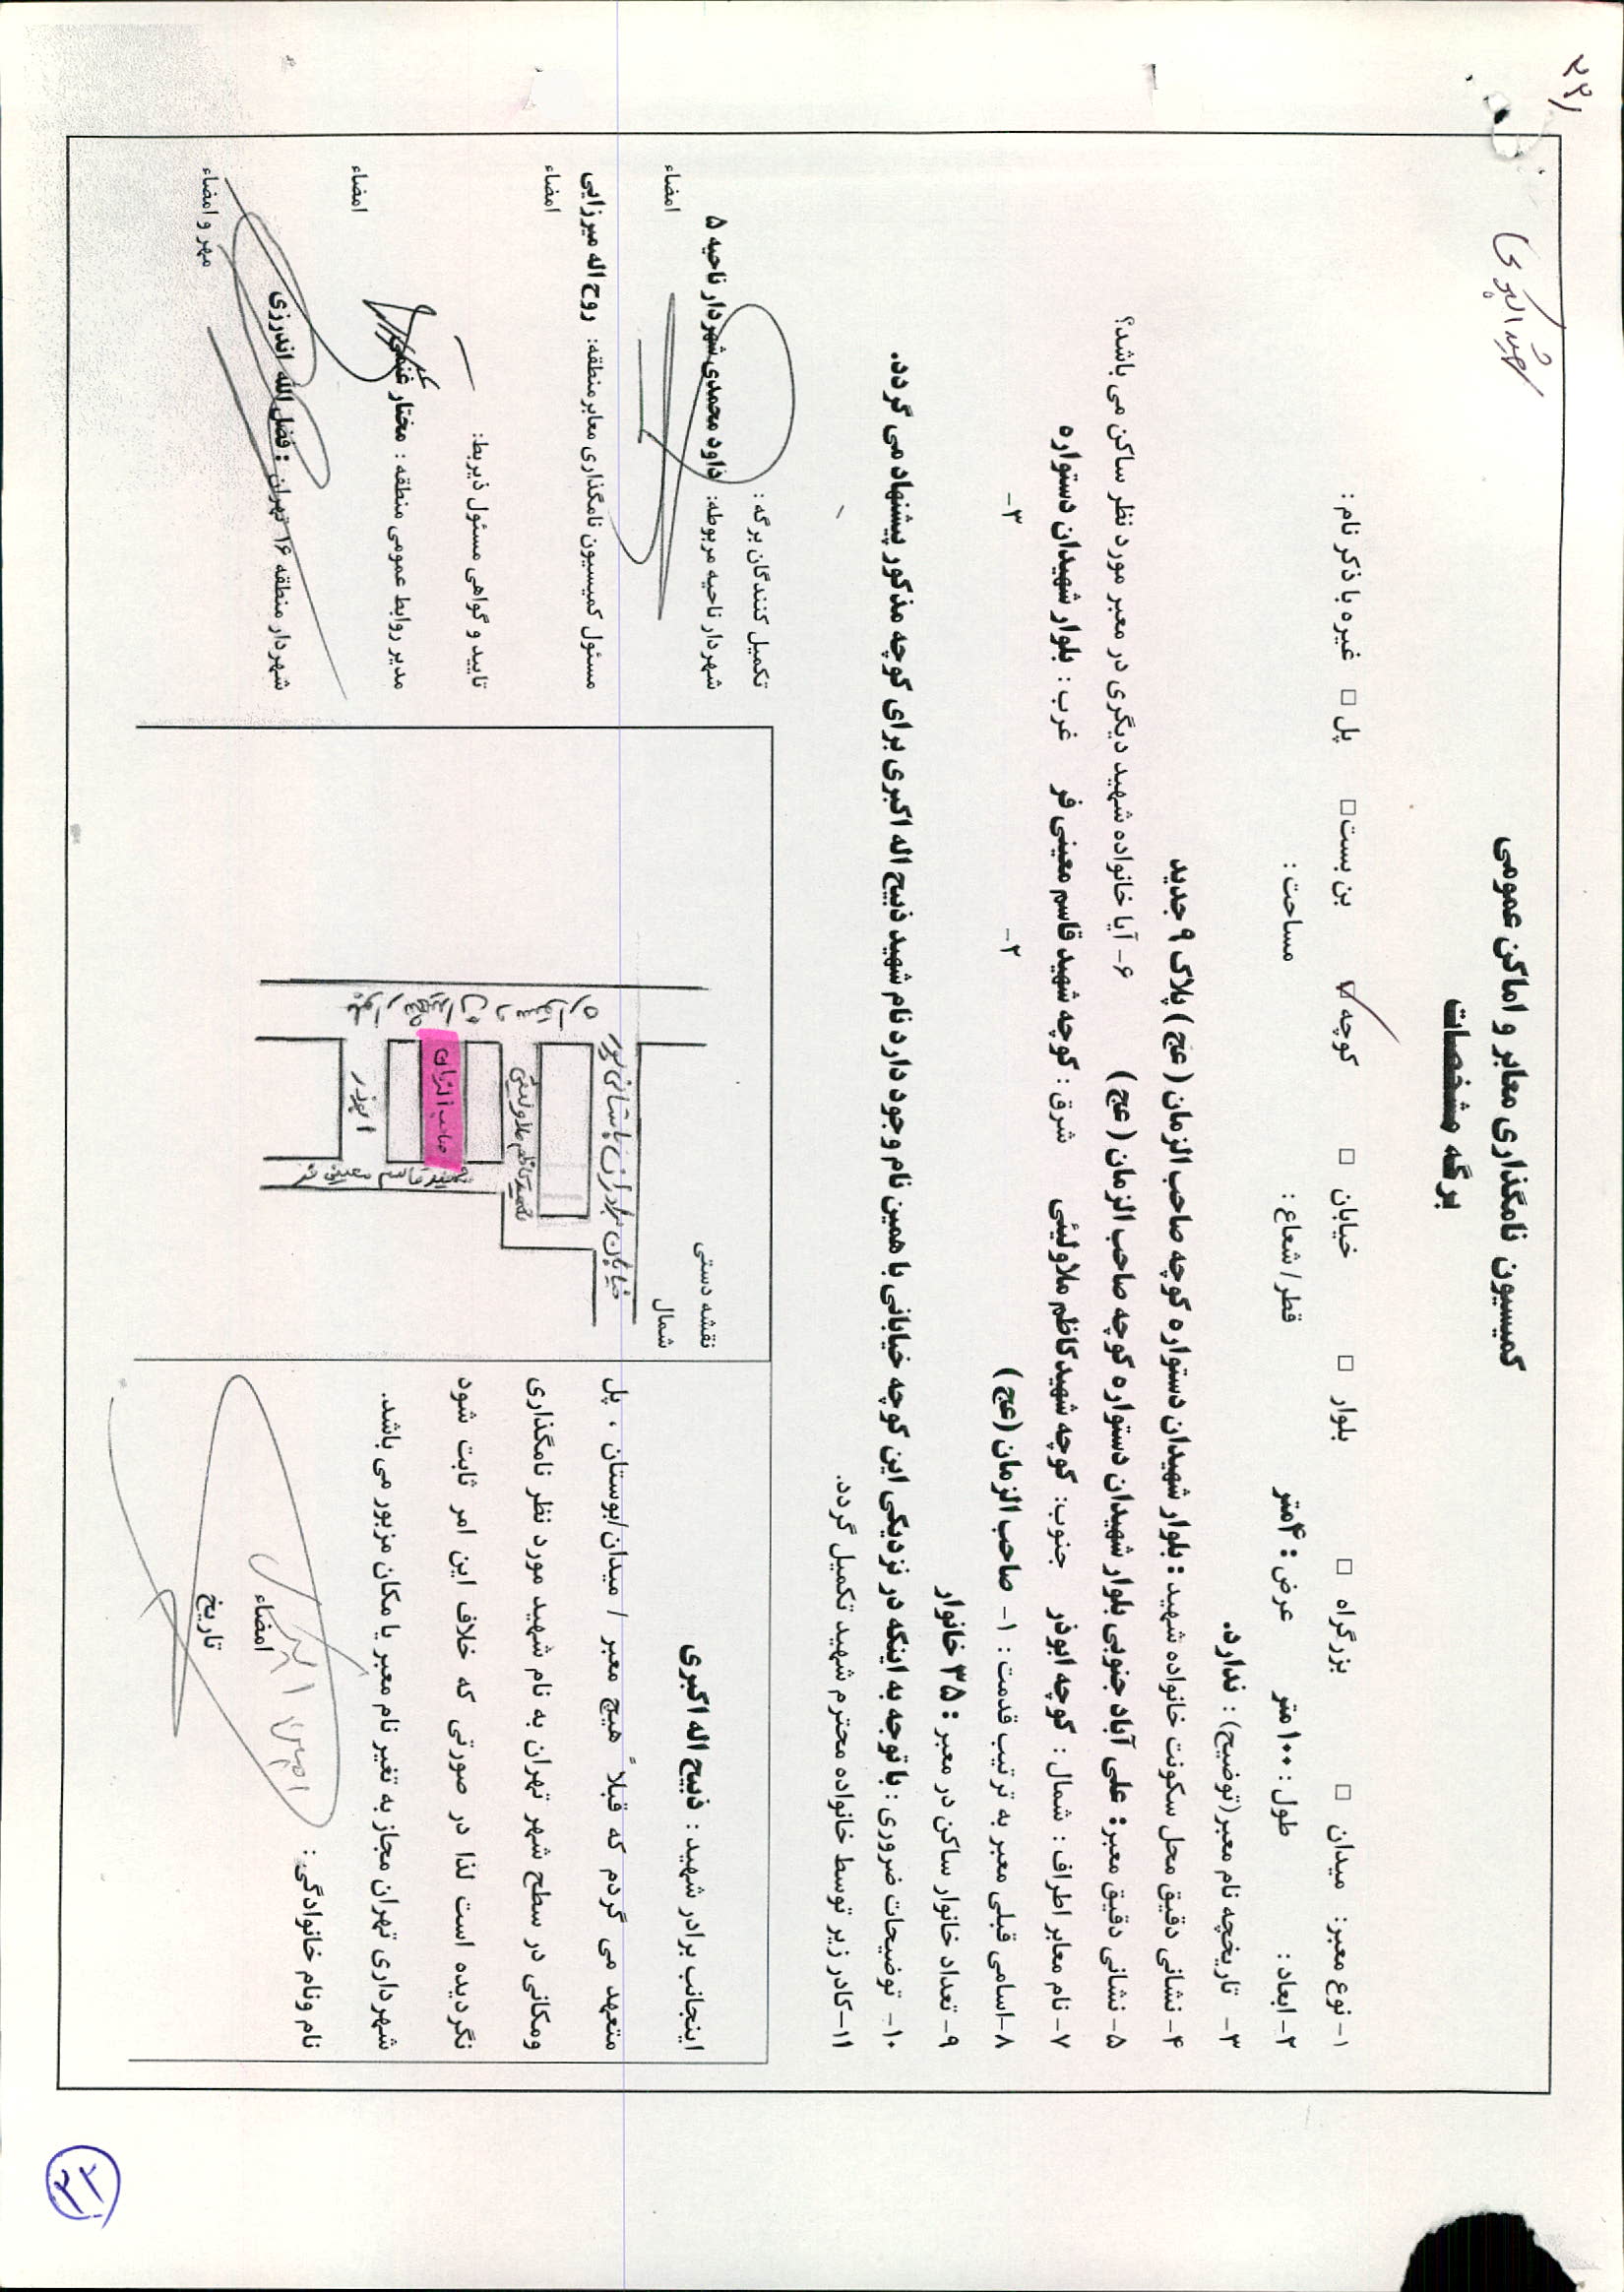 ۲۲/
شهید اکبری
کمیسیون نامگذاری معابر و اماکن عمومی
برگه مشخصات
۱- نوع معبر: میدان □ بزرگراه □ بلوار □ خیابان □ کوچه ☑ بن بست □ پل □ غیره با ذکر نام :
۲- ابعاد : طول : ۱۰۰متر عرض : ۴متر قطر / شعاع : مساحت :
۳- تاریخچه نام معبر(توضیح) : ندارد.
۴- نشانی دقیق محل سکونت خانواده شهید : بلوار شهیدان دستواره کوچه صاحب الزمان ( عج ) پلاک ۹ جدید
۵- نشانی دقیق معبر : علی آباد جنوبی بلوار شهیدان دستواره کوچه صاحب الزمان ( عج ) ۶- آیا خانواده شهید دیگری در معبر مورد نظر ساکن می باشد؟
۷- نام معابر اطراف : شمال : کوچه ابوذر جنوب: کوچه شهید کاظم ملاولیئی شرق : کوچه شهید قاسم معینی فر غرب : بلوار شهیدان دستواره
۸-اسامی قبلی معبر به ترتیب قدمت : ۱- صاحب الزمان (عج) ۲- ۳-
۹- تعداد خانوار ساکن در معبر : ۳۵ خانوار
۱۰- توضیحات ضروری : با توجه به اینکه در نزدیکی این کوچه خیابانی با همین نام وجود دارد نام شهید ذبیح اله اکبری برای کوچه مذکور پیشنهاد می گردد.
۱۱-کادر زیر توسط خانواده محترم شهید تکمیل گردد.
اینجانب برادر شهید : ذبیح اله اکبری
متعهد می گردم که قبلاً هیچ معبر / میدان/بوستان ، پل
ومکانی در سطح شهر تهران به نام شهید مورد نظر نامگذاری
نگردیده است لذا در صورتی که خلاف این امر ثابت شود
شهرداری تهران مجاز به تغیر نام معبر یا مکان مزبور می باشد.
نام ونام خانوادگی :
امضاء
تاریخ
نقشه دستی
شمال
خیابان برادران باستانی پور
شهید کاظم ملاولیئی
بلوار شهیدان دستواره
صاحب الزمان
ابوذر
شهید قاسم معینی فر
تکمیل کنندگان برگه :
شهردار ناحیه مربوطه: داود محمدی شهردار ناحیه ۵
امضاء
مسئول کمیسیون نامگذاری معابر منطقه: روح اله میرزایی
امضاء
تایید و گواهی مسئول ذیربط:
مدیر روابط عمومی منطقه : مختار غنمی
امضاء
شهردار منطقه ۱۶ تهران : فضل الله اندرزی
مهر و امضاء
۲۲